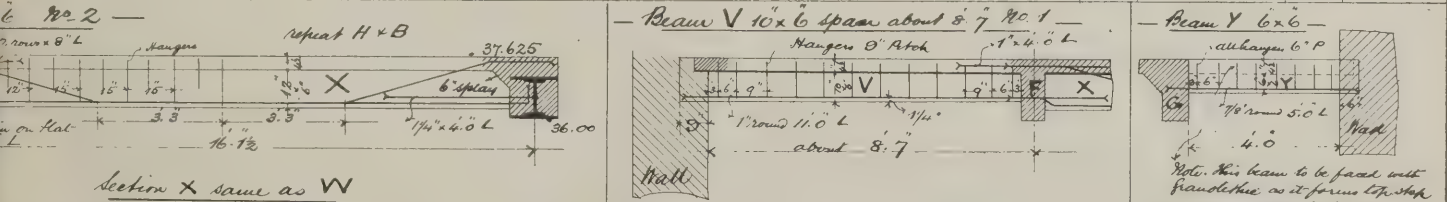 6 No. 2 —
repeat H & B
rows x 8" L
Hangers
37.625
12" 15" 15" 15"
X
6" splay
3'.3"
3'.3"
1 1/4" x 4'.0" L
36.00
on flat
L
16'.1 1/2"
Section X same as W
— Beam V 10" x 6" span about 8'.7" No. 1 —
Hangers 9" Pitch
1" x 4'.0" L
3" 6" 9"
V
9" 6" 3"
F
X
9"
1" round 11'.0" L
1 1/4"
about 8'.7"
Wall
— Beam Y 6" x 6" —
all hangers 6" P
G
Y
7/8" round 5'.0" L
4'.0"
Wall
Note. This beam to be faced with
Granolithic as it forms top step